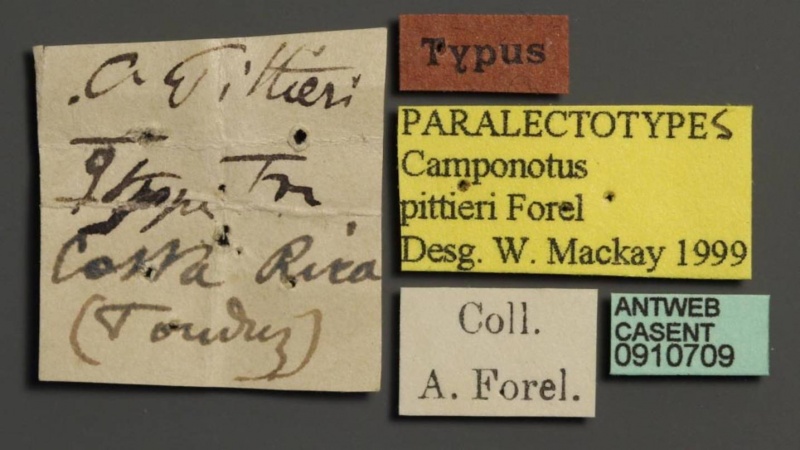 C. Pittieri
☿ type
Costa Rica
(Tonduz)
Typus
PARALECTOTYPES
Camponotus
pittieri Forel
Desg. W. Mackay 1999
Coll.
A. Forel.
ANTWEB
CASENT
0910709